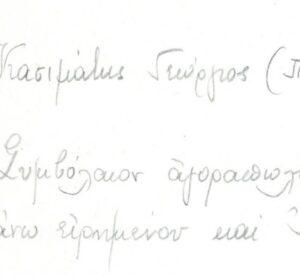 Κασιμάτης Γεώργιος (Π
Συμβόλαιον ἀγοραπωλ
άνω εἰρημένου καί